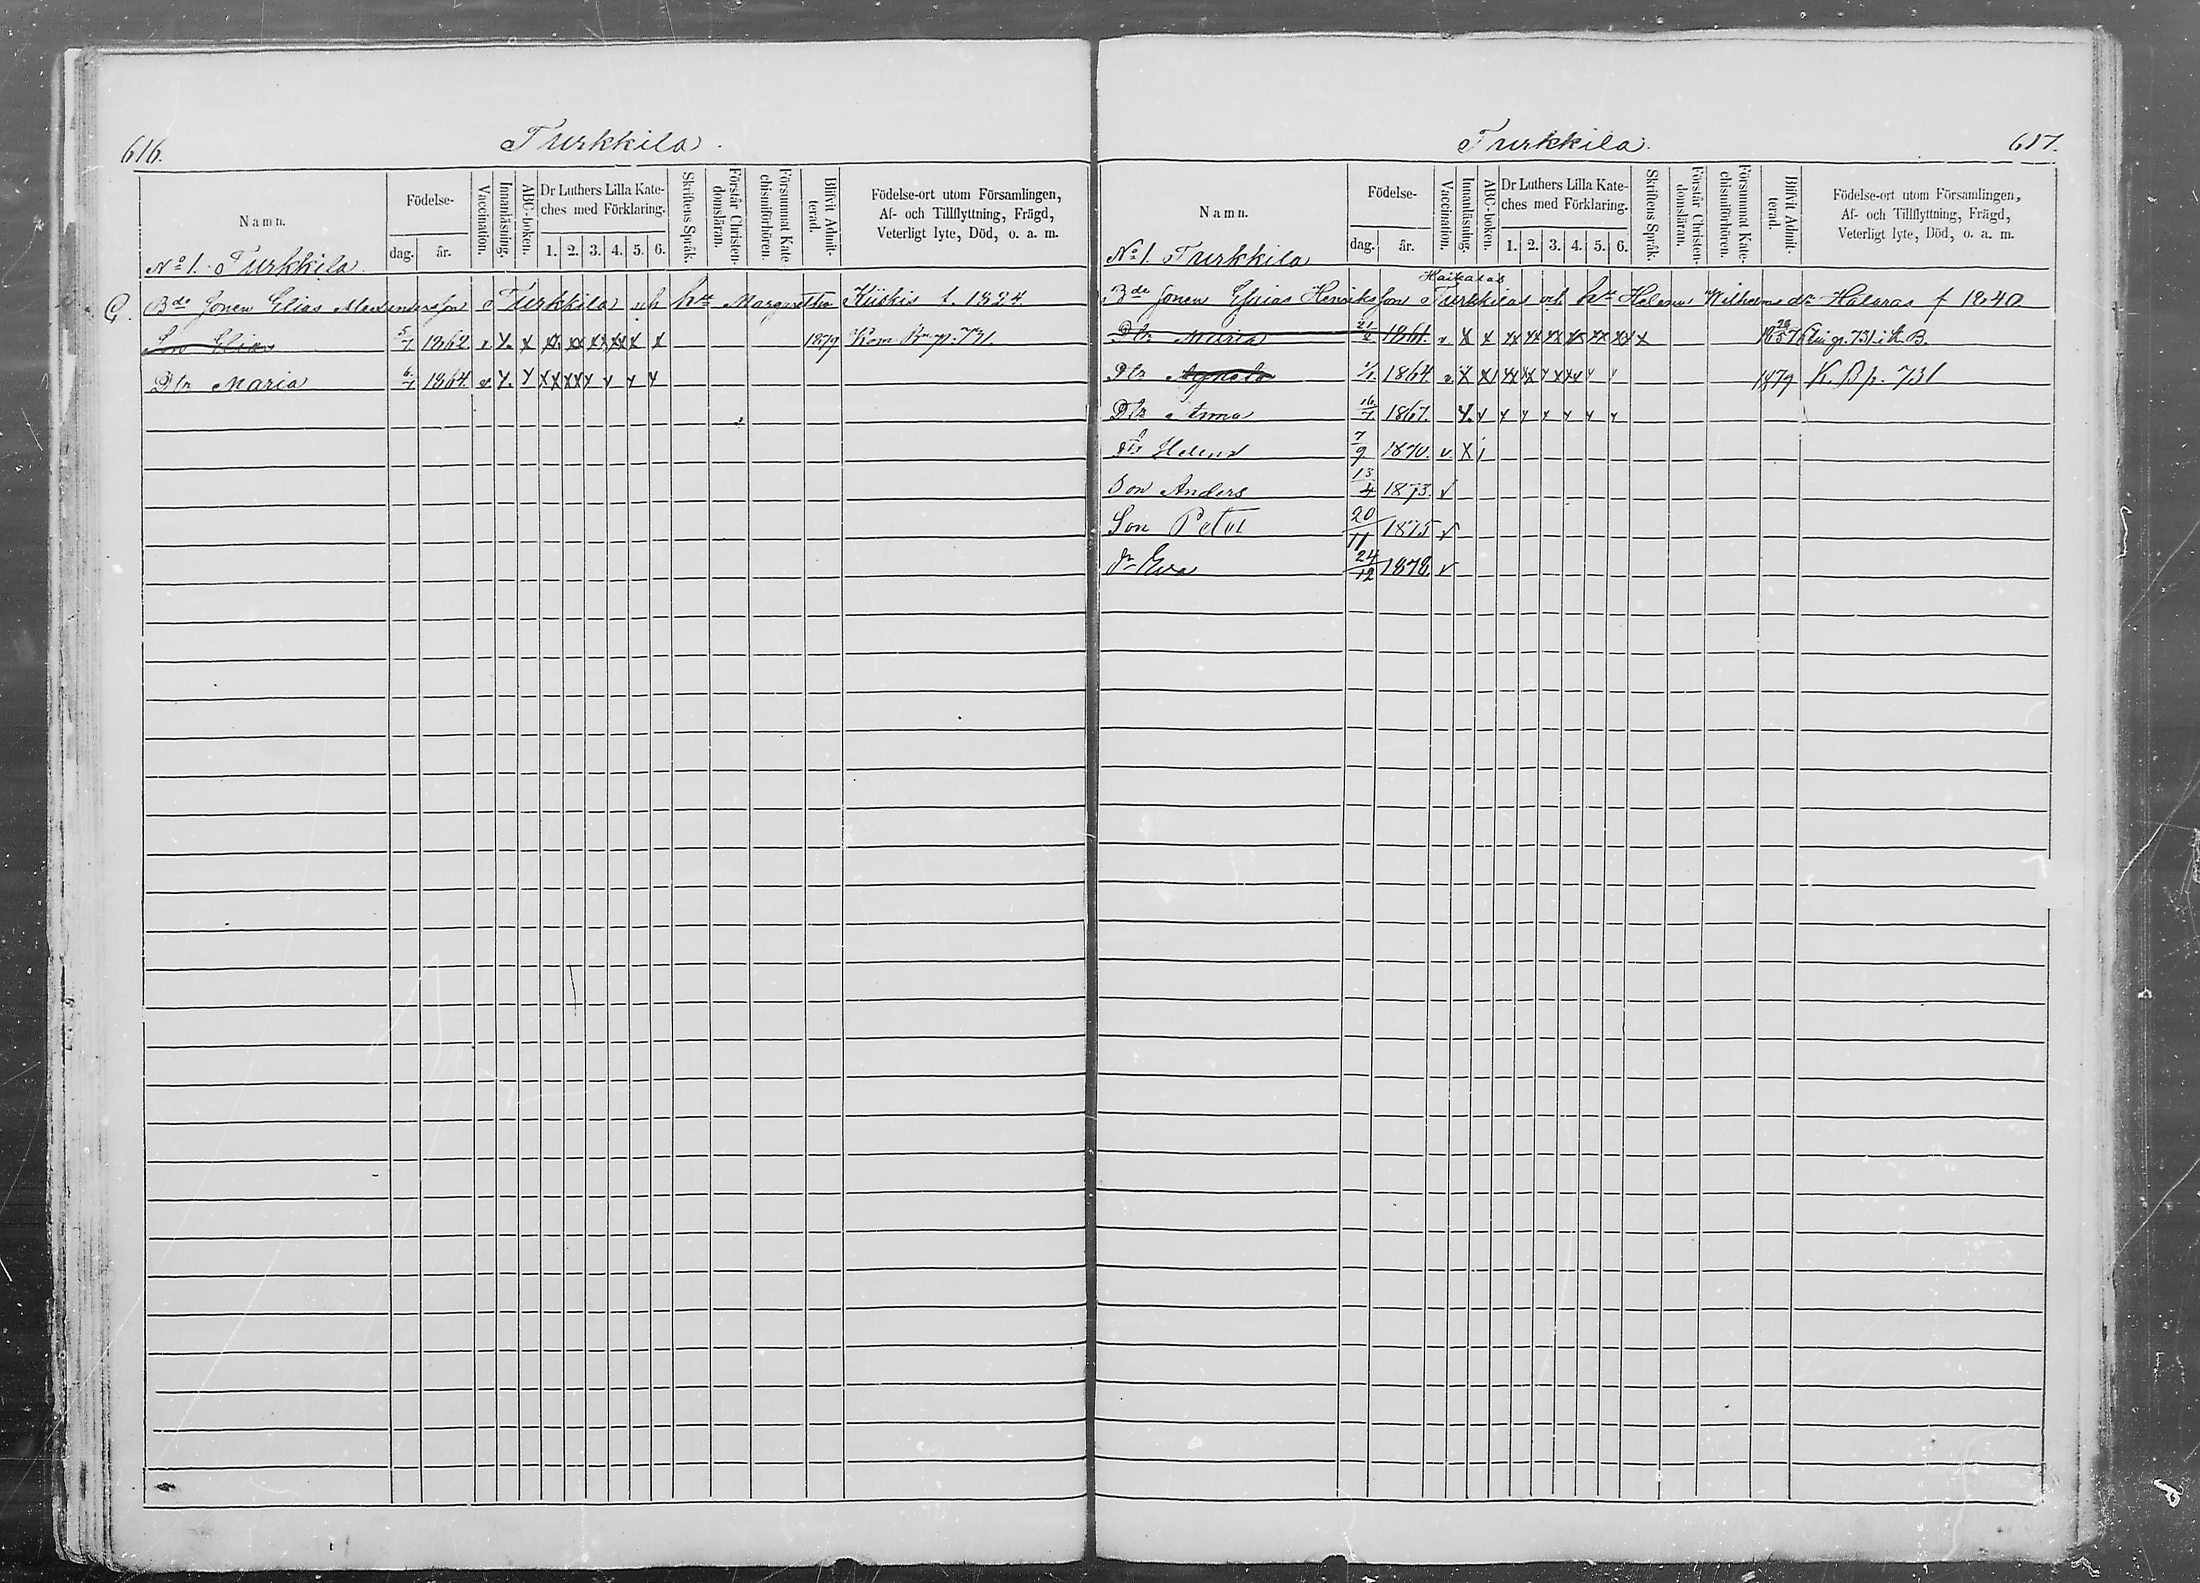 616.
Turkkila.
Namn.
Födelse-
dag.
år.
Vaccination.
Innanläsning.
ABC-boken.
Dr Luthers Lilla Kate-
ches med Förklaring.
1. 2. 3. 4. 5. 6.
Skriftens Språk.
Förstår Christen-
domsläran.
Försummat Kate
chismiförhören.
Blifvit Admit-
terad.
Födelse-ort utom Församlingen,
Af- och Tillflyttning, Frägd,
Veterligt lyte, Död, o. a. m.
No 1. Turkkila
Bde Sonen Elias Alexandersson Turkkila och hu Margaretha Kiiskis f. 1824
Son Elias 5/7 1862 v X X XX XX XX XX X X 1879 Kom. Br. p. 731.
Dtr Maria 6/1 1864 v X X XX XX X X X X
Turkkila.
617.
Namn.
Födelse-
dag.
år.
Vaccination.
Innanläsning.
ABC-boken.
Dr Luthers Lilla Kate-
ches med Förklaring.
1. 2. 3. 4. 5. 6.
Skriftens Språk.
Förstår Christen-
domsläran.
Försummat Kate-
chismiförhören.
Blifvit Admit-
terad.
Födelse-ort utom Församlingen,
Af- och Tillflyttning, Frägd,
Veterligt lyte, Död, o. a. m.
No 1. Turkkila
Bde Sonen Esaias Henriksson Turkkilas och hu Helena Wilhelmsdr Halaras f 1840
Dtr Maria 1861. v X X XX XX XX XX XX XX X p. 731 i K. B.
Dtr Agneta 1/1 1864. v X X 1879 K. B p. 731
Dtr Anna 16/7 1867. X X X X X X X X
Dtr Helena 7/9 1870. v X
Son Anders 13/4 1873. v
Son Petter 20/11 1875 v
Dr Eva 24/12 1878 v